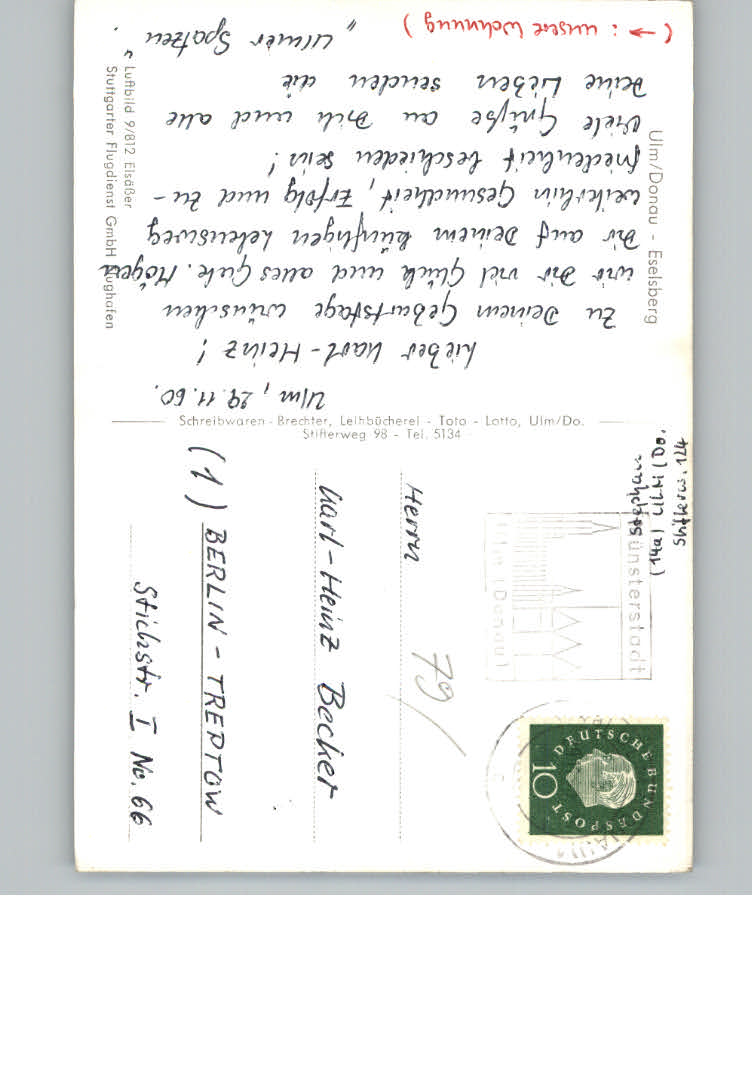 Ulm, 29.11.60.
Lieber Karl-Heinz!
Zu Deinem Geburtstage wünschen
wir Dir viel Glück und alles Gute. Mögen
Dir auf Deinem künftigen Lebensweg
weiterhin Gesundheit, Erfolg und Zu-
friedenheit beschieden sein!
Viele Grüße an Dich und alle
Deine Lieben senden die
"Ulmer Spatzen".
(→ : unsere Wohnung)
Ulm/Donau - Eselsberg
Luftbild 9/812 Elsäßer
Stuttgarter Flugdienst GmbH Flughafen
Schreibwaren-Brechter, Leihbücherei - Toto - Lotto, Ulm/Do.
Stifterweg 98 - Tel. 5134
Stephan
(14a) ULM/Do.
Stifterw. 124
Münsterstadt
Ulm (Donau)
DEUTSCHE BUNDESPOST
10
79/
Herrn
Karl-Heinz Becker
(1) BERLIN-TREPTOW
Stichstr. I No. 66